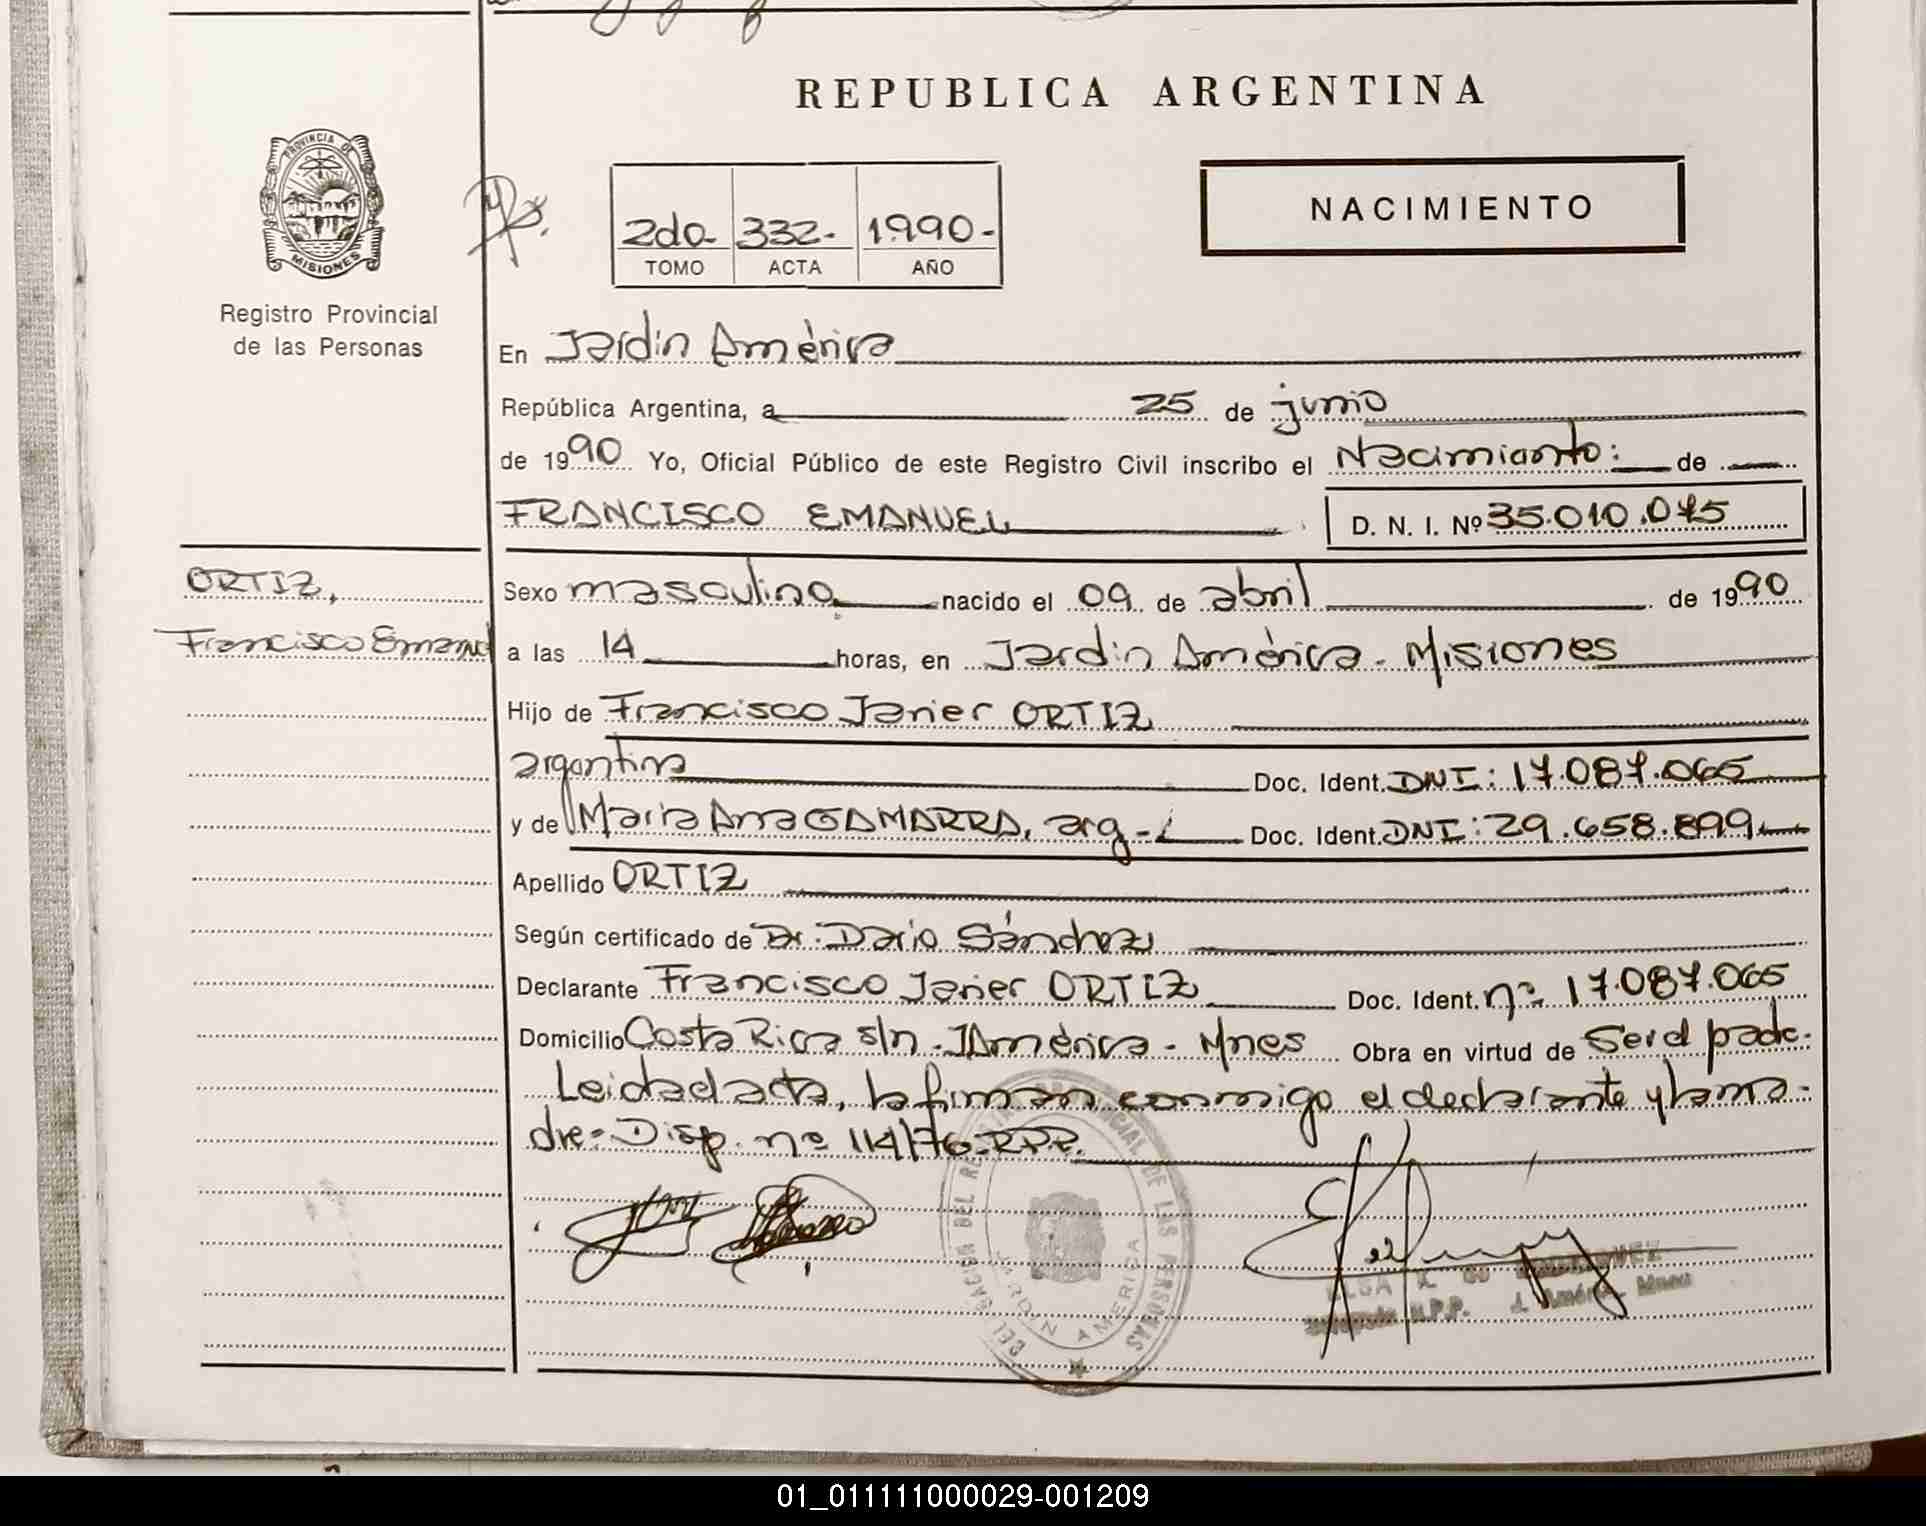 REPUBLICA ARGENTINA
PROVINCIA DE
MISIONES
Registro Provincial
de las Personas
2do- 332- 1990-
TOMO ACTA AÑO
NACIMIENTO
En Jardín América
República Argentina, a 25 de junio
de 1990 Yo, Oficial Público de este Registro Civil inscribo el Nacimiento: de
FRANCISCO EMANUEL D. N. I. Nº 35.010.075
ORTIZ,
Francisco Emanuel
Sexo masculino nacido el 09 de abril de 1990
a las 14 horas, en Jardín América - Misiones
Hijo de Francisco Javier ORTIZ
argentina Doc. Ident. DNI: 17.087.065
y de María Ana GAMARRA, arg- Doc. Ident. DNI: 29.658.899
Apellido ORTIZ
Según certificado de Dr. Dario Sánchez
Declarante Francisco Javier ORTIZ Doc. Ident. nº 17.087.065
Domicilio Costa Rica s/n - J América - Mnes Obra en virtud de Ser el padre.
Leida el acta, la firman conmigo el declarante y la ma-
dre- Disp. nº 114/76-RPP.
DEL REGISTRO PROVINCIAL DE LAS PERSONAS
JARDIN AMERICA
ELSA R. de
R.P.P. J. América Mnes
01_011111000029-001209